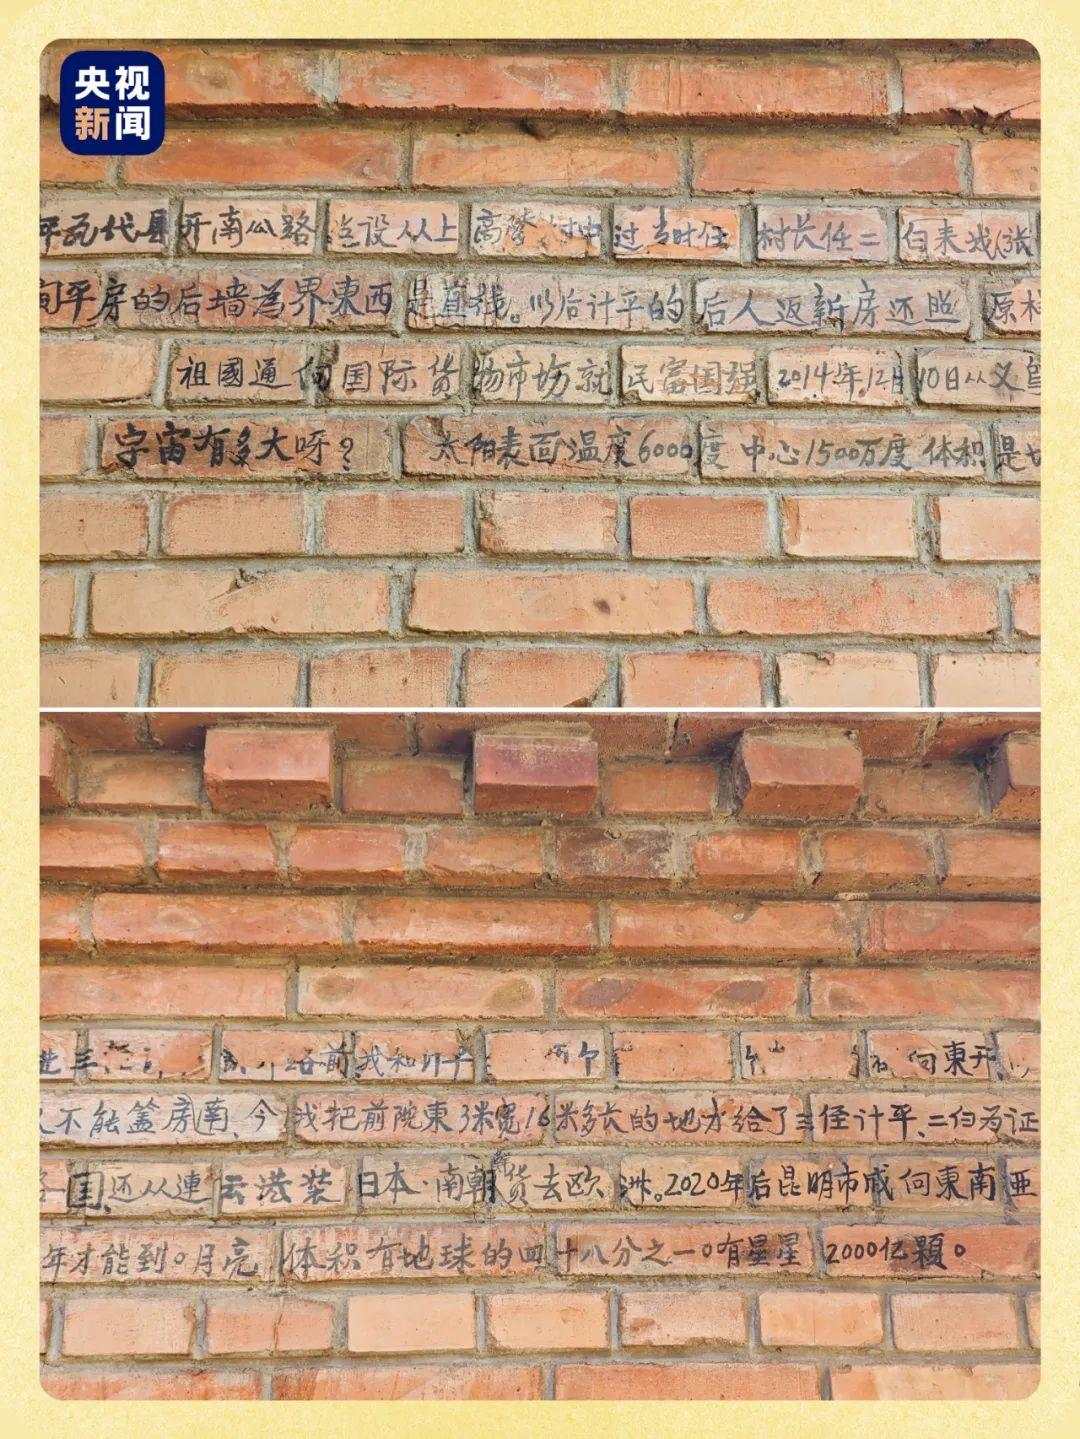 央视
新闻
平瓦代县开南公路 当设从上 高峰 村中 过 当时任 村长任二 自来 线 张
间平房的后墙為界東西是直线。以后计平的后人返新房还照 原村
祖國通向国际货物市场就民富国强 2014.年.12月10日从义
宇宙有多大呀? 太阳表面温度6000度 中心1500万度 体积是地
进 三 路前 我和计平 向東开、
不能盖房南、今我把前院東3米宽16米多长的地方給了三径计平、二伯為证
国、还从連云港装日本·南朝鲜货去欧洲。2020年后昆明市成向東南亚
年才能到。月亮体积有地球的四十八分之一。有星星2000亿颗。